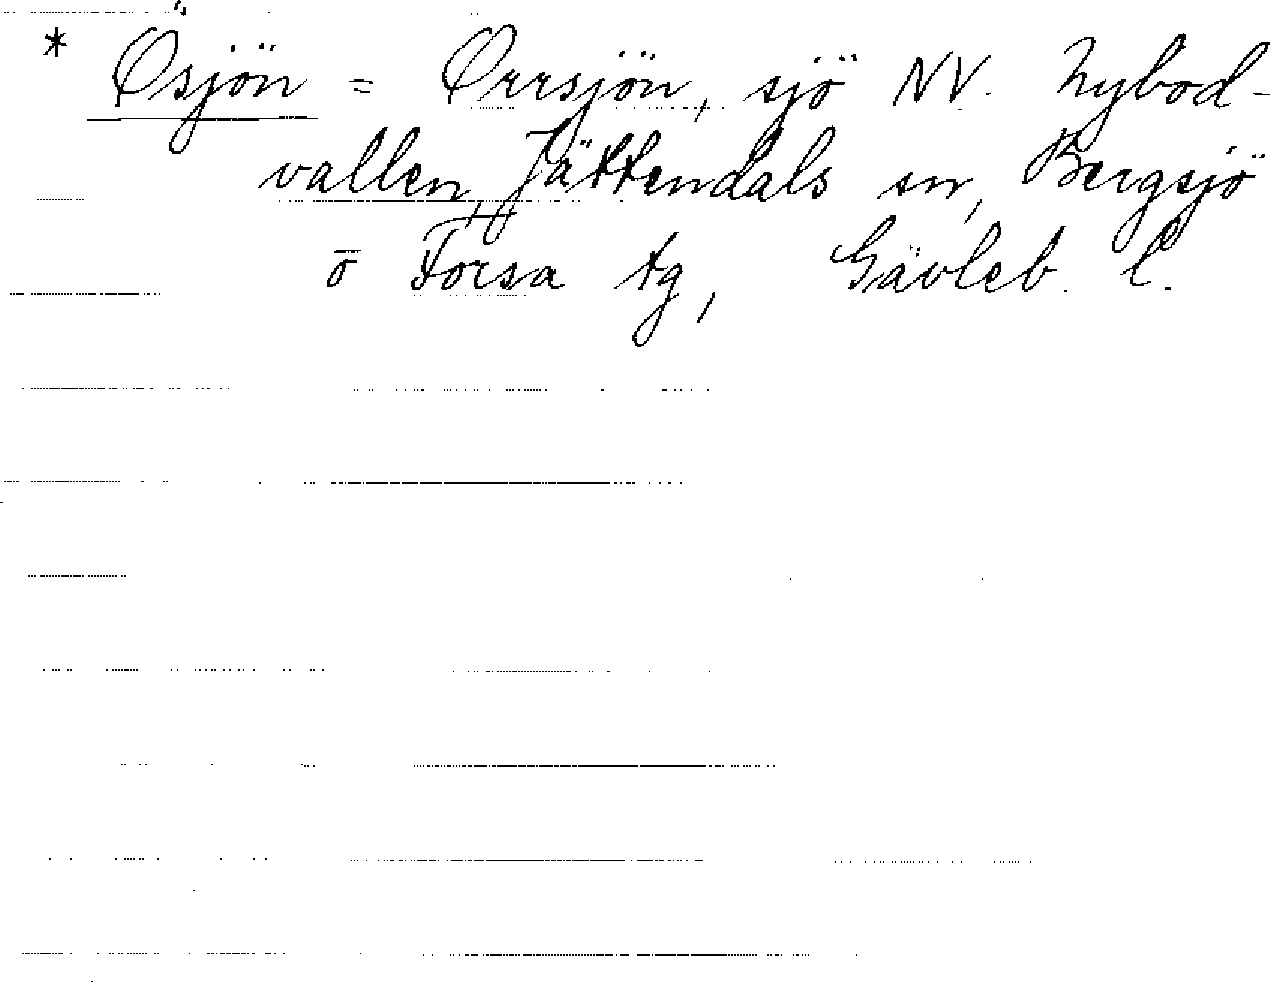 * Ösjön = Örrsjön, sjö NV. Nybod-
vallen, Jättendals sn, Bergsjö
o Forsa tg, Gävleb. l.